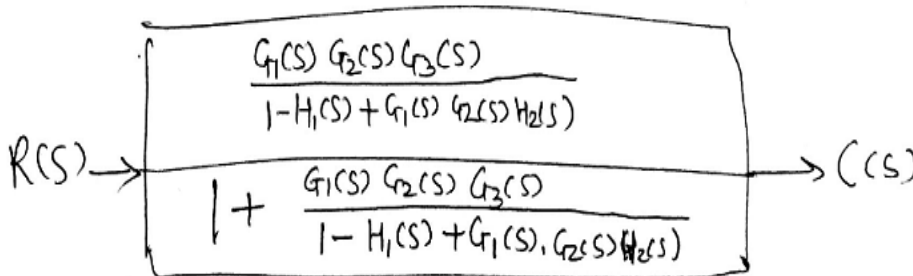 G1(S) G2(S) G3(S)
1-H1(S) + G1(S) G2(S) H2(S)
R(S) → → C(S)
1 + G1(S) G2(S) G3(S)
1 - H1(S) + G1(S). G2(S) H2(S)